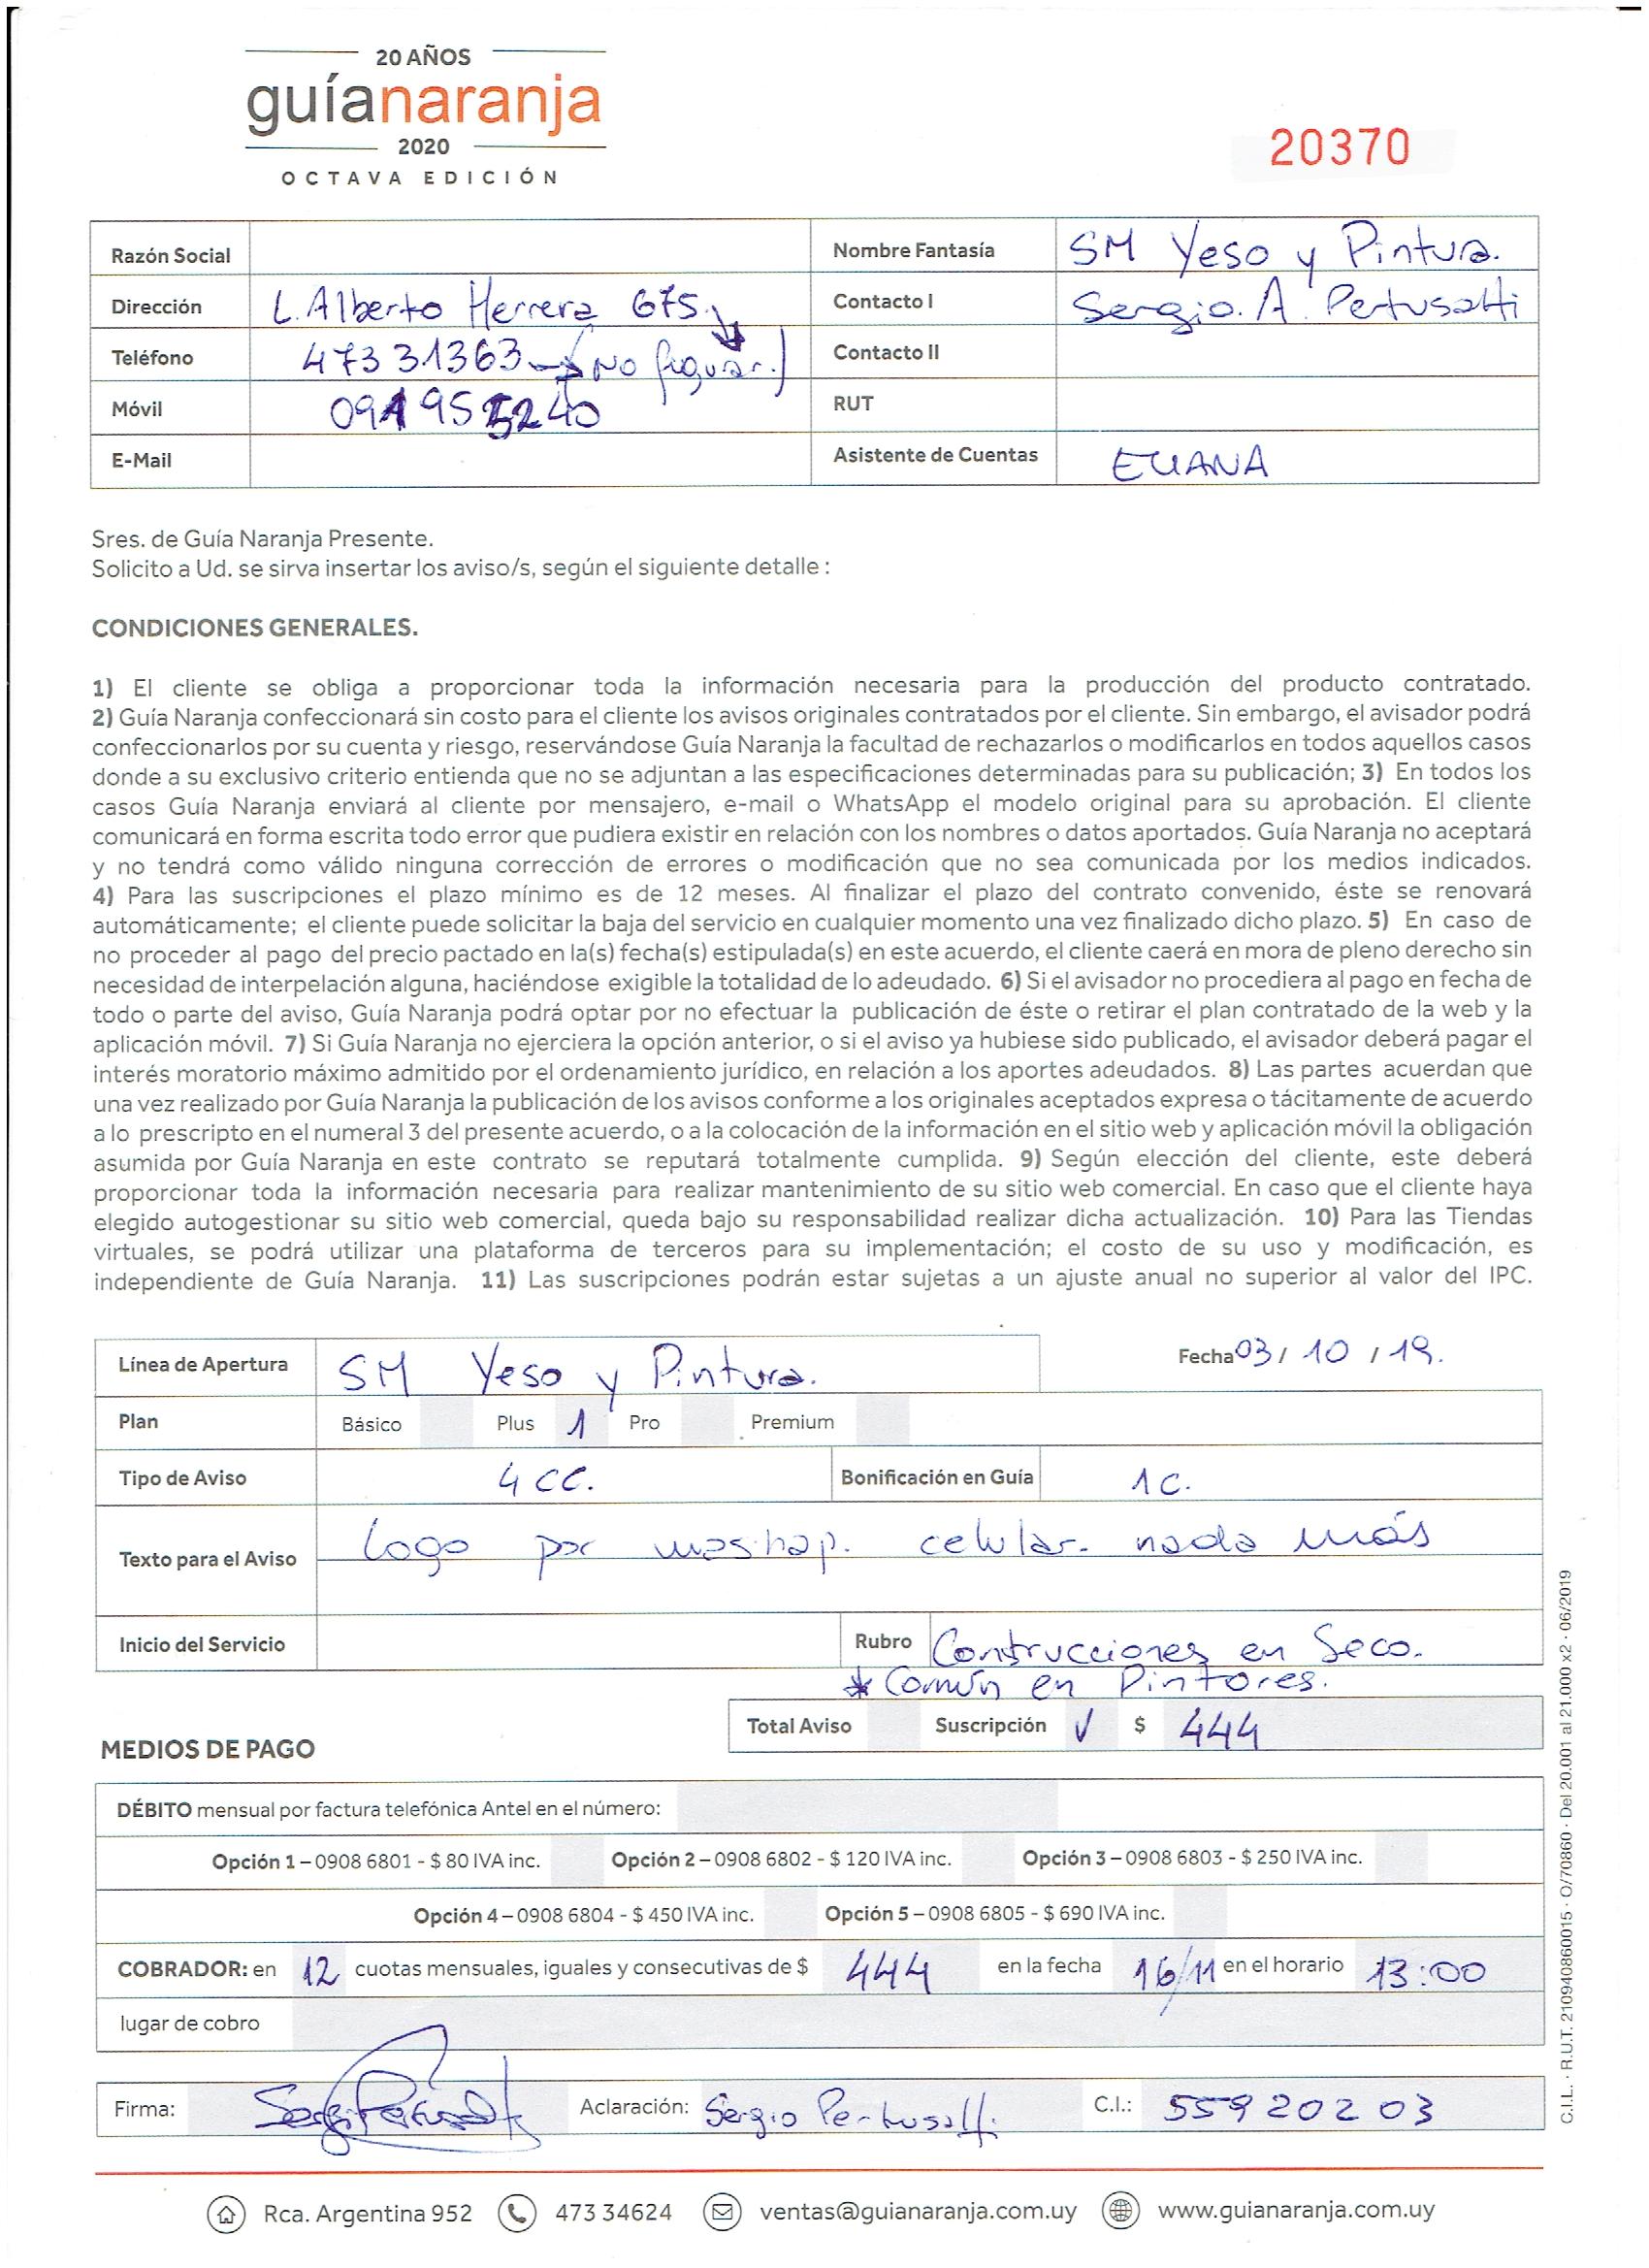 20 AÑOS
guíanaranja
2020
OCTAVA EDICIÓN
20370
Razón Social
Nombre Fantasía SM Yeso y Pintura.
Dirección L. Alberto Herrera 675.
Contacto I Sergio. A. Pertusatti
Teléfono 473 31363 (No figurar.)
Contacto II
Móvil 091955240
RUT
E-Mail
Asistente de Cuentas ELIANA
Sres. de Guía Naranja Presente.
Solicito a Ud. se sirva insertar los aviso/s, según el siguiente detalle :
CONDICIONES GENERALES.
1) El cliente se obliga a proporcionar toda la información necesaria para la producción del producto contratado.
2) Guía Naranja confeccionará sin costo para el cliente los avisos originales contratados por el cliente. Sin embargo, el avisador podrá
confeccionarlos por su cuenta y riesgo, reservándose Guía Naranja la facultad de rechazarlos o modificarlos en todos aquellos casos
donde a su exclusivo criterio entienda que no se adjuntan a las especificaciones determinadas para su publicación; 3) En todos los
casos Guía Naranja enviará al cliente por mensajero, e-mail o WhatsApp el modelo original para su aprobación. El cliente
comunicará en forma escrita todo error que pudiera existir en relación con los nombres o datos aportados. Guía Naranja no aceptará
y no tendrá como válido ninguna corrección de errores o modificación que no sea comunicada por los medios indicados.
4) Para las suscripciones el plazo mínimo es de 12 meses. Al finalizar el plazo del contrato convenido, éste se renovará
automáticamente; el cliente puede solicitar la baja del servicio en cualquier momento una vez finalizado dicho plazo. 5) En caso de
no proceder al pago del precio pactado en la(s) fecha(s) estipulada(s) en este acuerdo, el cliente caerá en mora de pleno derecho sin
necesidad de interpelación alguna, haciéndose exigible la totalidad de lo adeudado. 6) Si el avisador no procediera al pago en fecha de
todo o parte del aviso, Guía Naranja podrá optar por no efectuar la publicación de éste o retirar el plan contratado de la web y la
aplicación móvil. 7) Si Guía Naranja no ejerciera la opción anterior, o si el aviso ya hubiese sido publicado, el avisador deberá pagar el
interés moratorio máximo admitido por el ordenamiento jurídico, en relación a los aportes adeudados. 8) Las partes acuerdan que
una vez realizado por Guía Naranja la publicación de los avisos conforme a los originales aceptados expresa o tácitamente de acuerdo
a lo prescripto en el numeral 3 del presente acuerdo, o a la colocación de la información en el sitio web y aplicación móvil la obligación
asumida por Guía Naranja en este contrato se reputará totalmente cumplida. 9) Según elección del cliente, este deberá
proporcionar toda la información necesaria para realizar mantenimiento de su sitio web comercial. En caso que el cliente haya
elegido autogestionar su sitio web comercial, queda bajo su responsabilidad realizar dicha actualización. 10) Para las Tiendas
virtuales, se podrá utilizar una plataforma de terceros para su implementación; el costo de su uso y modificación, es
independiente de Guía Naranja. 11) Las suscripciones podrán estar sujetas a un ajuste anual no superior al valor del IPC.
Línea de Apertura SM Yeso y Pintura.
Fecha 03 / 10 / 19.
Plan Básico Plus 1 Pro Premium
Tipo de Aviso 4 CC. Bonificación en Guía 1 C.
Texto para el Aviso Logo por washap. celular. nada más
Inicio del Servicio Rubro Construcciones en Seco.
* Común en Pintores.
Total Aviso Suscripción ✓ $ 444
MEDIOS DE PAGO
DÉBITO mensual por factura telefónica Antel en el número:
Opción 1 – 0908 6801 - $ 80 IVA inc. Opción 2 – 0908 6802 - $ 120 IVA inc. Opción 3 – 0908 6803 - $ 250 IVA inc.
Opción 4 – 0908 6804 - $ 450 IVA inc. Opción 5 – 0908 6805 - $ 690 IVA inc.
COBRADOR: en 12 cuotas mensuales, iguales y consecutivas de $ 444 en la fecha 16/11 en el horario 13:00
lugar de cobro
Firma: Aclaración: Sergio Pertusatti. C.I.: 55920203
Rca. Argentina 952 473 34624 ventas@guianaranja.com.uy www.guianaranja.com.uy
C.I.L. · R.U.T. 210940860015 · O/70860 · Del 20.001 al 21.000 x2 · 06/2019